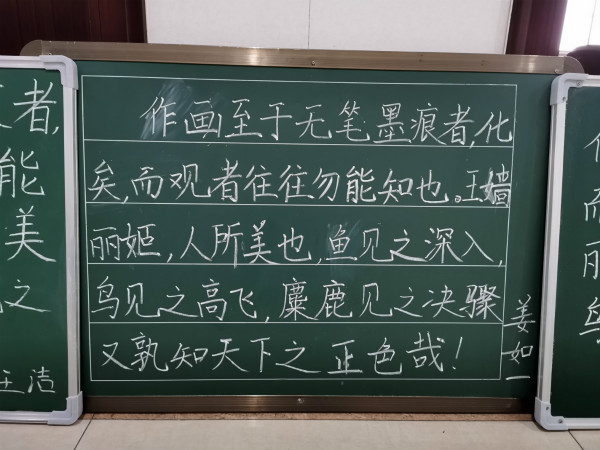 作画至于无笔墨痕者,化
矣,而观者往往勿能知也。王嫱
丽姬,人所美也,鱼见之深入,
鸟见之高飞,麋鹿见之决骤
又孰知天下之正色哉!
姜如一
者,
能
美
之
王洁
作
而
丽
鸟